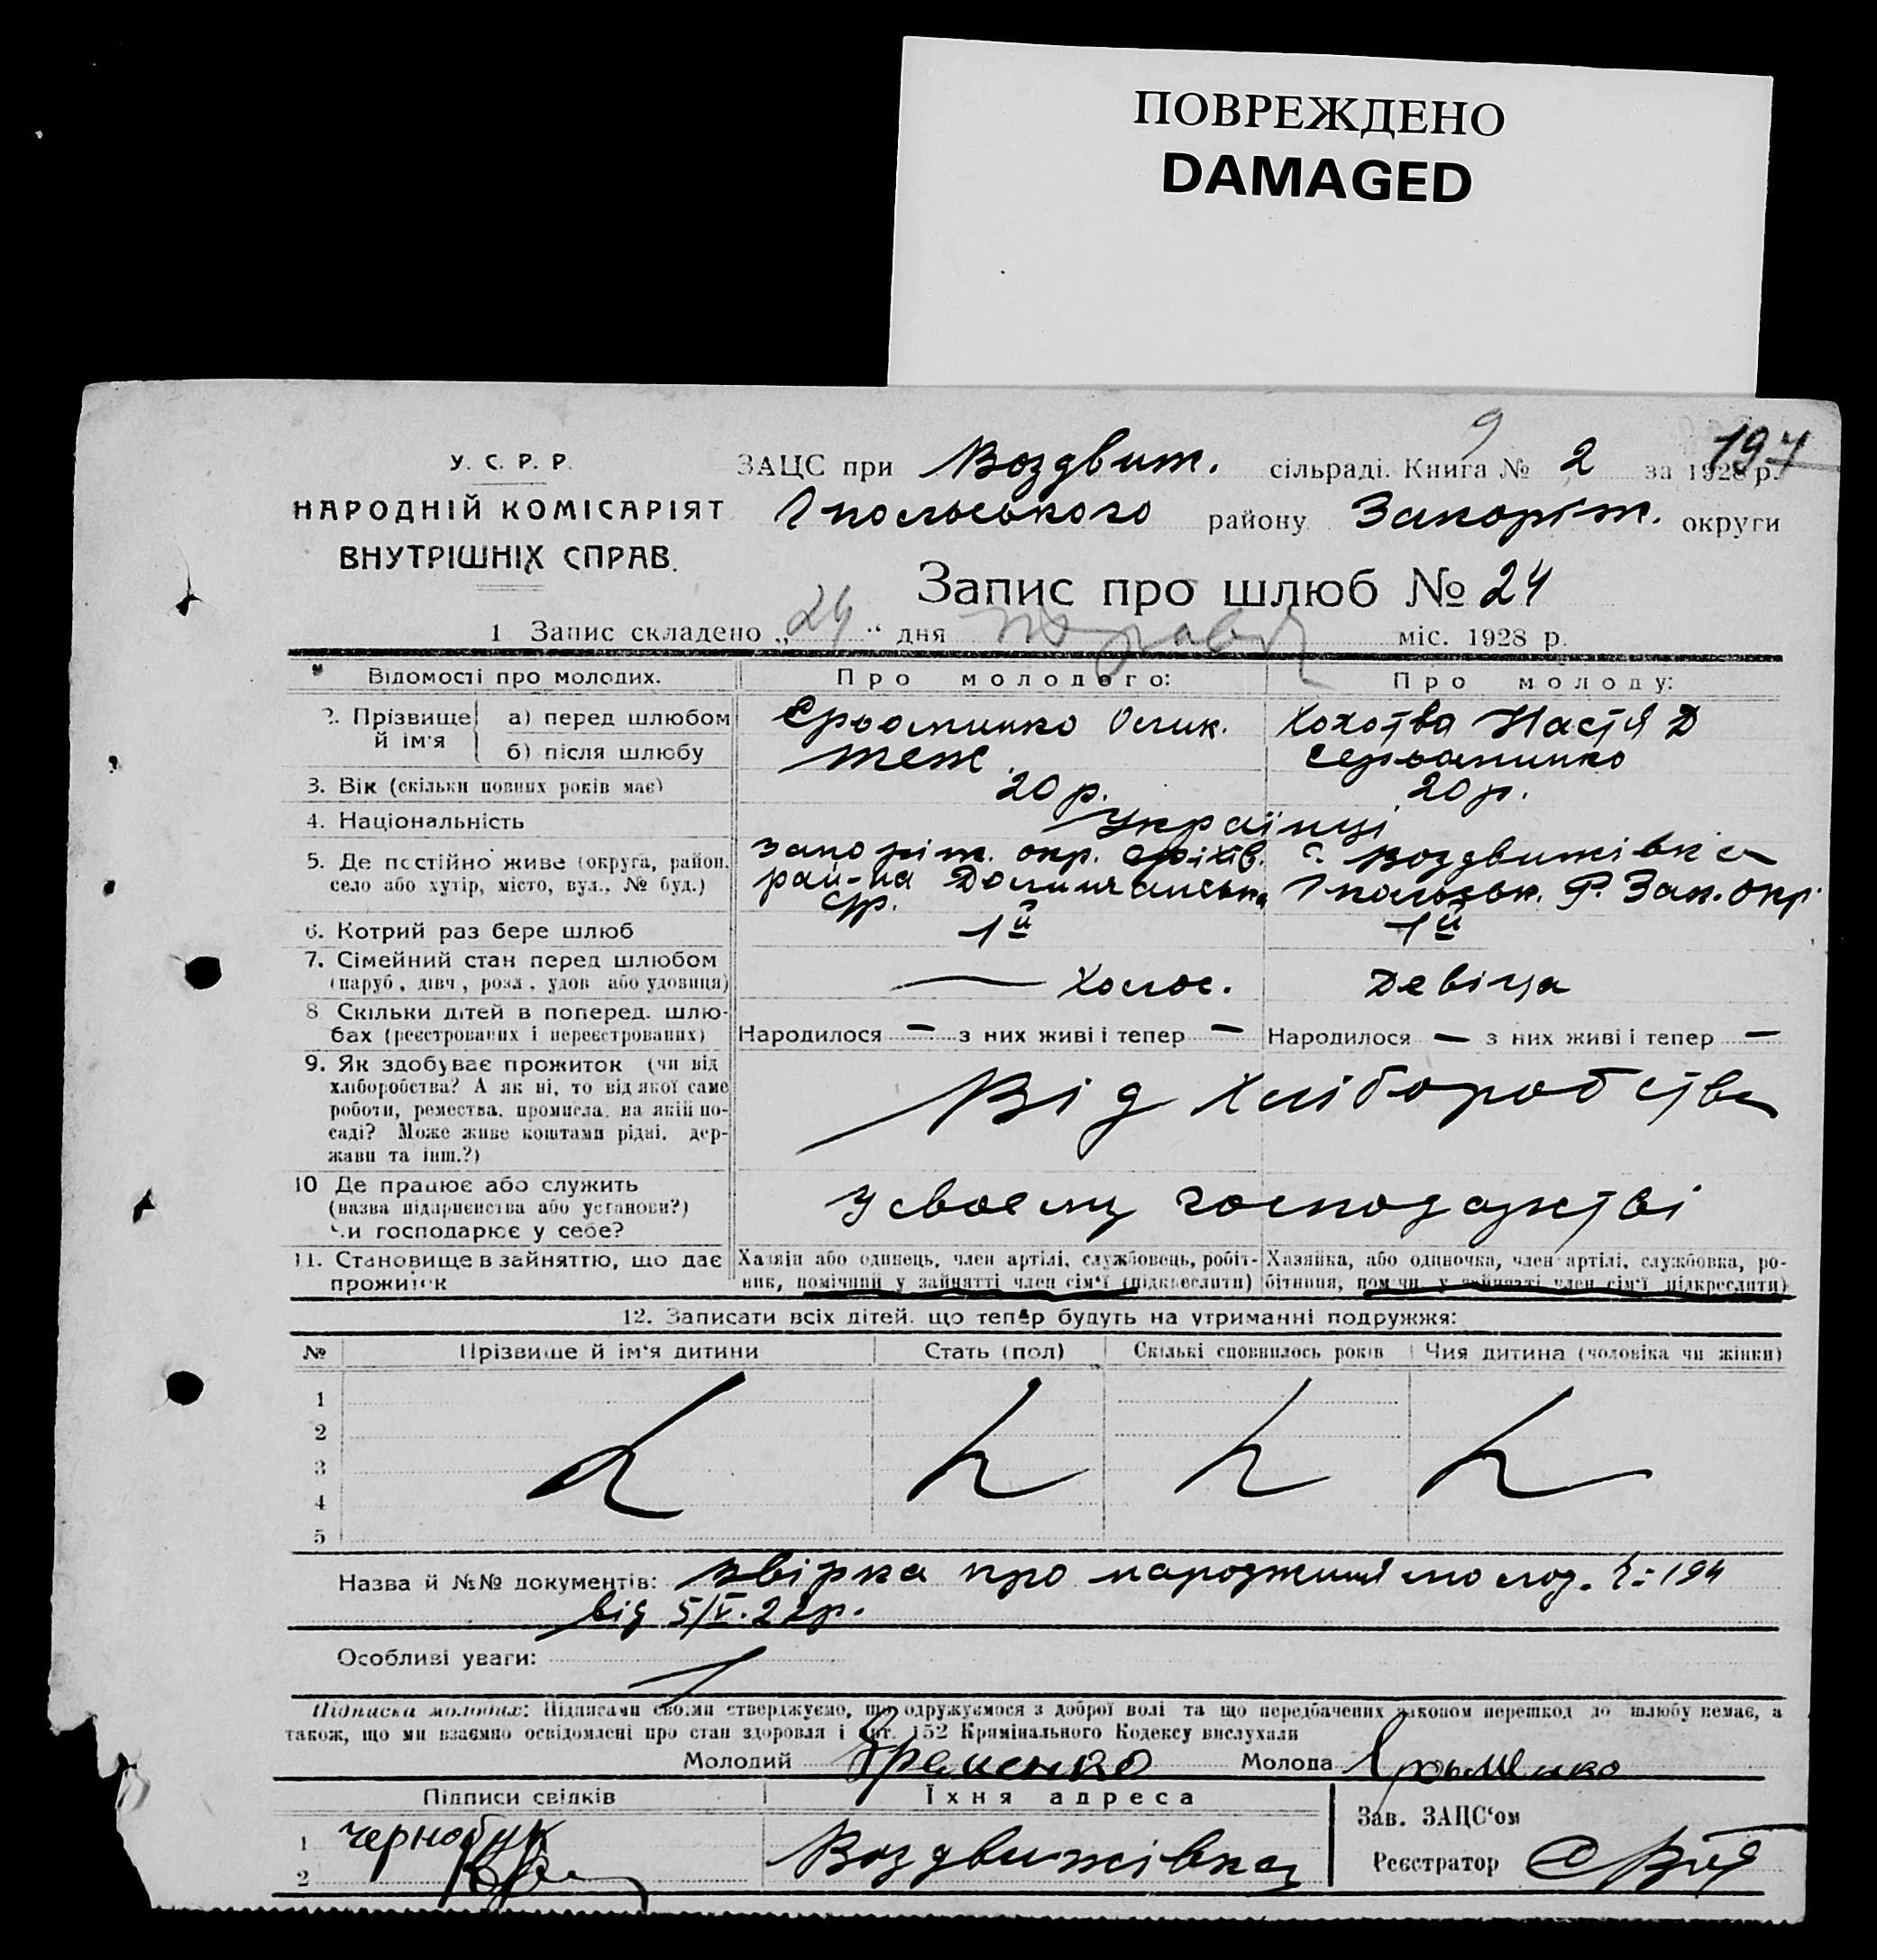 ПОВРЕЖДЕНО
DAMAGED
У. С. Р. Р.
НАРОДНІЙ КОМІСАРІЯТ
ВНУТРІШНІХ СПРАВ.
9
194
ЗАЦС при Воздвиж. сільраді. Книга № 2 за 1928 р.
Гпольського району Запоріж. округи
Запис про шлюб № 24
1 Запис складено „24“ дня травня міс. 1928 р.
Відомості про молодих. Про молодого: Про молоду:
2. Прізвище й ім'я
а) перед шлюбом Настя Д
б) після шлюбу теж
3. Вік (скільки повних років має) 20 р. 20 р.
4. Національність Українці
5. Де постійно живе (округа, район, Запоріж. окр. Оріхів. с. Воздвижівка
село або хутір, місто, вул., № буд.) рай-на Гпольськ. Р. Зап. окр.
ср.
6. Котрий раз бере шлюб 1й 1й
7. Сімейний стан перед шлюбом
(паруб, дівч, розл, удов або удовиця) — Холос. Девіца
8 Скільки дітей в поперед. шлю-
бах (реєстрованих і нереєстрованих) Народилося — з них живі і тепер — Народилося — з них живі і тепер —
9. Як здобуває прожиток (чи від
хліборобства? А як ні, то від якої саме
роботи, ремества, промисла, на якій по-
саді? Може живе коштами рідні, дер-
жави та інш.?)
Від хліборобства
10 Де працює або служить
(назва підприємства або установи?)
Чи господарює у себе?
У своему господарстві
11. Становище в зайняттю, що дає Хазяїн або одинець, член артілі, службовець, робіт- Хазяйка, або одиночка, член артілі, службовка, ро-
прожиток ник, помічний у зайнятті член сім'ї (підкреслити) бітниця, помічн. у зайнятті член сім'ї підкреслити)
12. Записати всіх дітей, що тепер будуть на утриманні подружжя:
№ Прізвище й ім'я дитини Стать (пол) Скількі сповнилось років Чия дитина (чоловіка чи жінки)
1
2
3
4
5
Назва й №№ документів: про народження молод. 194
від 5/V.
Особливі уваги:
Підписка молодих: Підписами своїми стверджуємо, що одружуємося з доброї волі та що передбачених законом перешкод до шлюбу немає, а
також, що ми взаємно освідомлені про стан здоровля і Арт. 152 Кримінального Кодексу вислухали
Молодий Молода
Підписи свідків Їхня адреса
Зав. ЗАЦС‘ом
1
2
Воздвижівка
Реєстратор